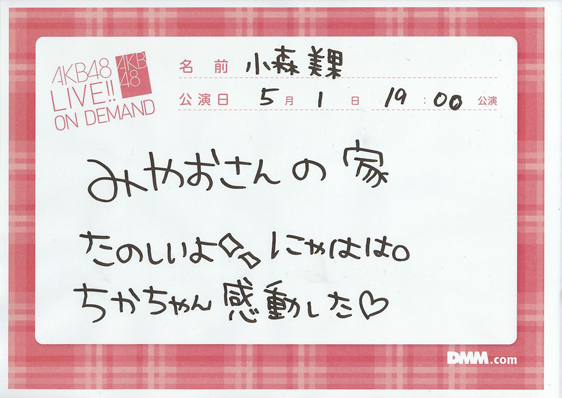 AKB48
LIVE!!
ON DEMAND
AKB
48
名前 小森美果
公演日 5月1日 19:00 公演
みやおさんの家
たのしいよ✧✧にゃはは。
ちかちゃん感動した♡
DMM.com